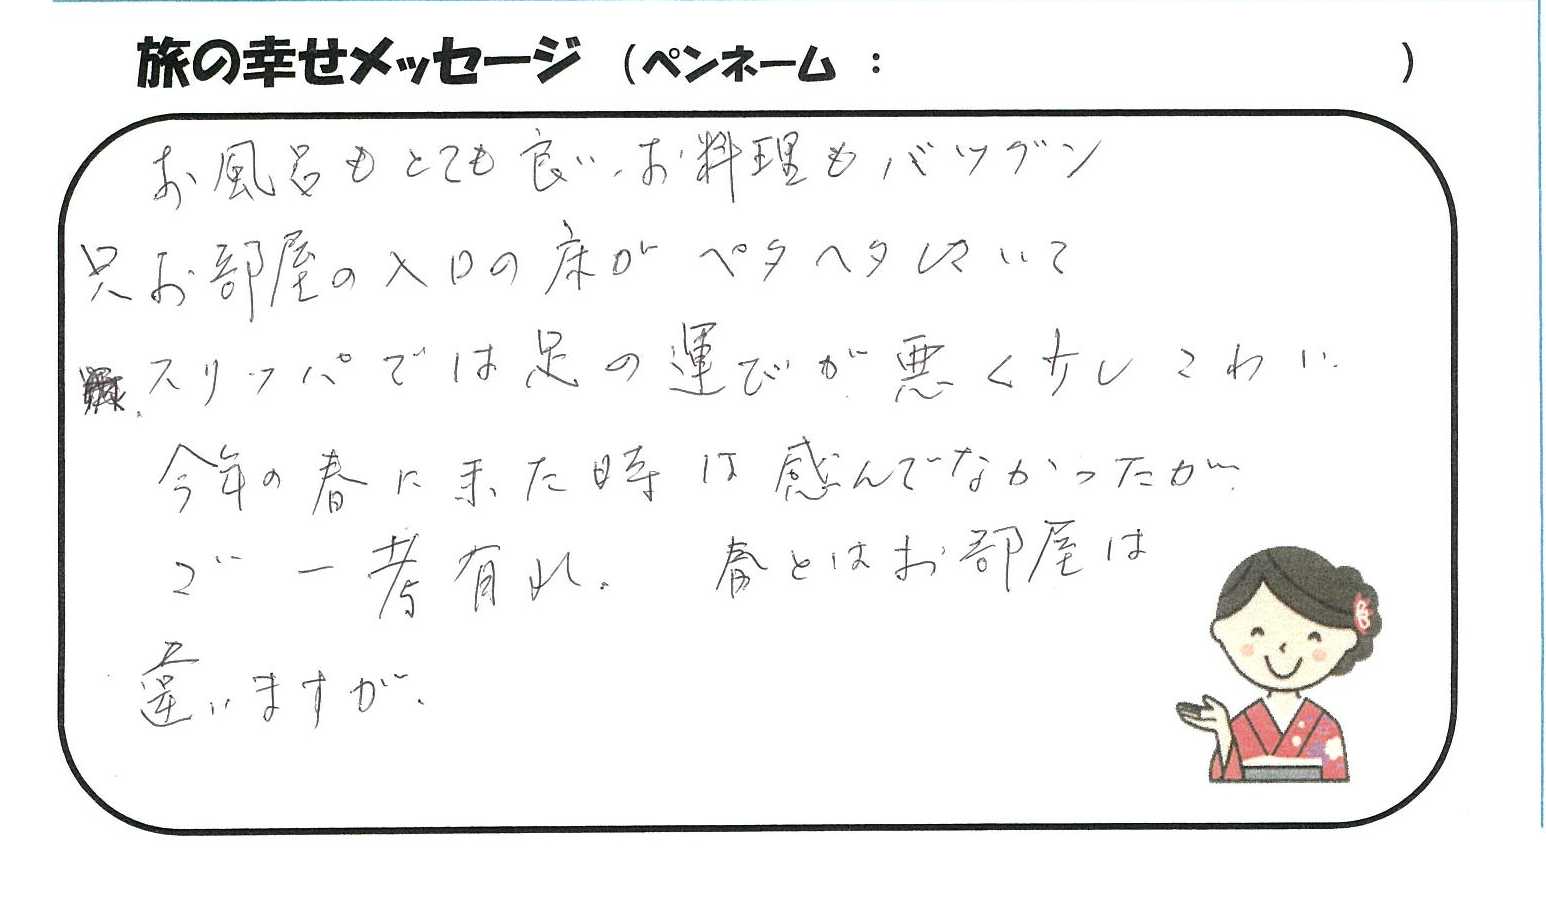 旅の幸せメッセージ （ペンネーム： ）
お風呂もとても良い、お料理もバツグン
只お部屋の入口の床がペタペタしていて
スリッパでは足の運びが悪く少しこわい.
今年の春に来た時は感んでなかったが.
ご一考有れ. 春とはお部屋は
違いますが.